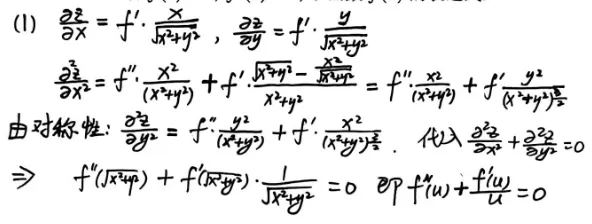 (1) ∂z/∂x = f′·x/√(x²+y²) , ∂z/∂y = f′·y/√(x²+y²)
∂²z/∂x² = f″·x²/(x²+y²) + f′·(√(x²+y²) − x²/√(x²+y²))/(x²+y²) = f″·x²/(x²+y²) + f′ y²/(x²+y²)^(3/2)
由对称性: ∂²z/∂y² = f″·y²/(x²+y²) + f′·x²/(x²+y²)^(3/2) . 代入 ∂²z/∂x² + ∂²z/∂y² = 0
⇒ f″(√(x²+y²)) + f′(√(x²+y²))·1/√(x²+y²) = 0 即 f″(u) + f′(u)/u = 0